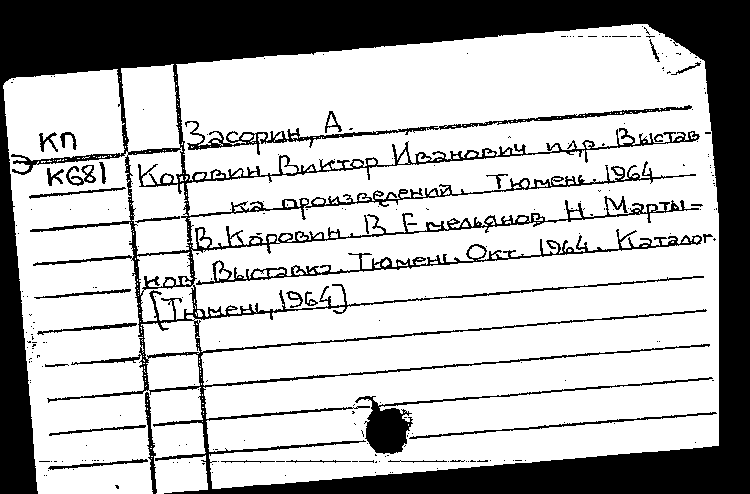 Засорин, А.
КП
К681
Коровин, Виктор Иванович и др. Выстав-
ка произведений. Тюмень. 1964
В. Коровин. В Емельянов Н. Марты=
нов. Выставка. Тюмень. Окт. 1964. Каталог.
[Тюмень, 1964]